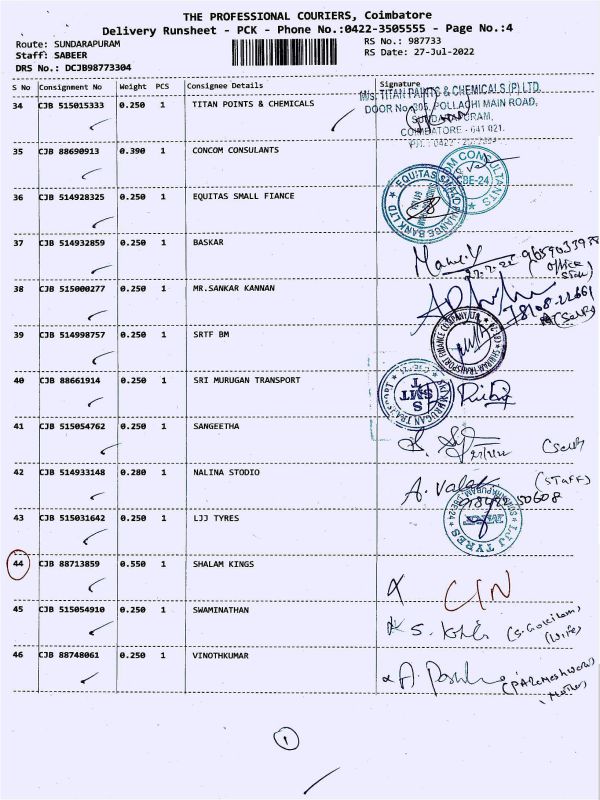 THE PROFESSIONAL COURIERS, Coimbatore
Delivery Runsheet - PCK - Phone No.:0422-3505555 - Page No.:4
Route: SUNDARAPURAM
RS No.: 987733
Staff: SABEER
RS Date: 27-Jul-2022
DRS No.: DCJB98773304
S No Consignment No Weight PCS Consignee Details Signature
34 CJB 515015333 0.250 1 TITAN POINTS & CHEMICALS
M/s. TITAN PAINTS & CHEMICALS (P) LTD.
DOOR No. 305, POLLACHI MAIN ROAD,
SUNDARAPURAM,
COIMBATORE - 641 021.
35 CJB 88690913 0.390 1 CONCOM CONSULANTS
CONSULTANTS
CBE-24
36 CJB 514928325 0.250 1 EQUITAS SMALL FIANCE
EQUITAS SMALL FINANCE BANK LTD
37 CJB 514932859 0.250 1 BASKAR
27.7.22
38 CJB 515000277 0.250 1 MR.SANKAR KANNAN
(Self)
39 CJB 514998757 0.250 1 SRTF BM
SHRIRAM TRANSPORT FINANCE COMPANY LTD.
40 CJB 88661914 0.250 1 SRI MURUGAN TRANSPORT
SMT
41 CJB 515054762 0.250 1 SANGEETHA
(Self)
42 CJB 514933148 0.280 1 NALINA STODIO
(STAFF)
43 CJB 515031642 0.250 1 LJJ TYRES
LJJ TYRES
44 CJB 88713859 0.550 1 SHALAM KINGS
45 CJB 515054910 0.250 1 SWAMINATHAN
(Wife)
46 CJB 88748061 0.250 1 VINOTHKUMAR
1